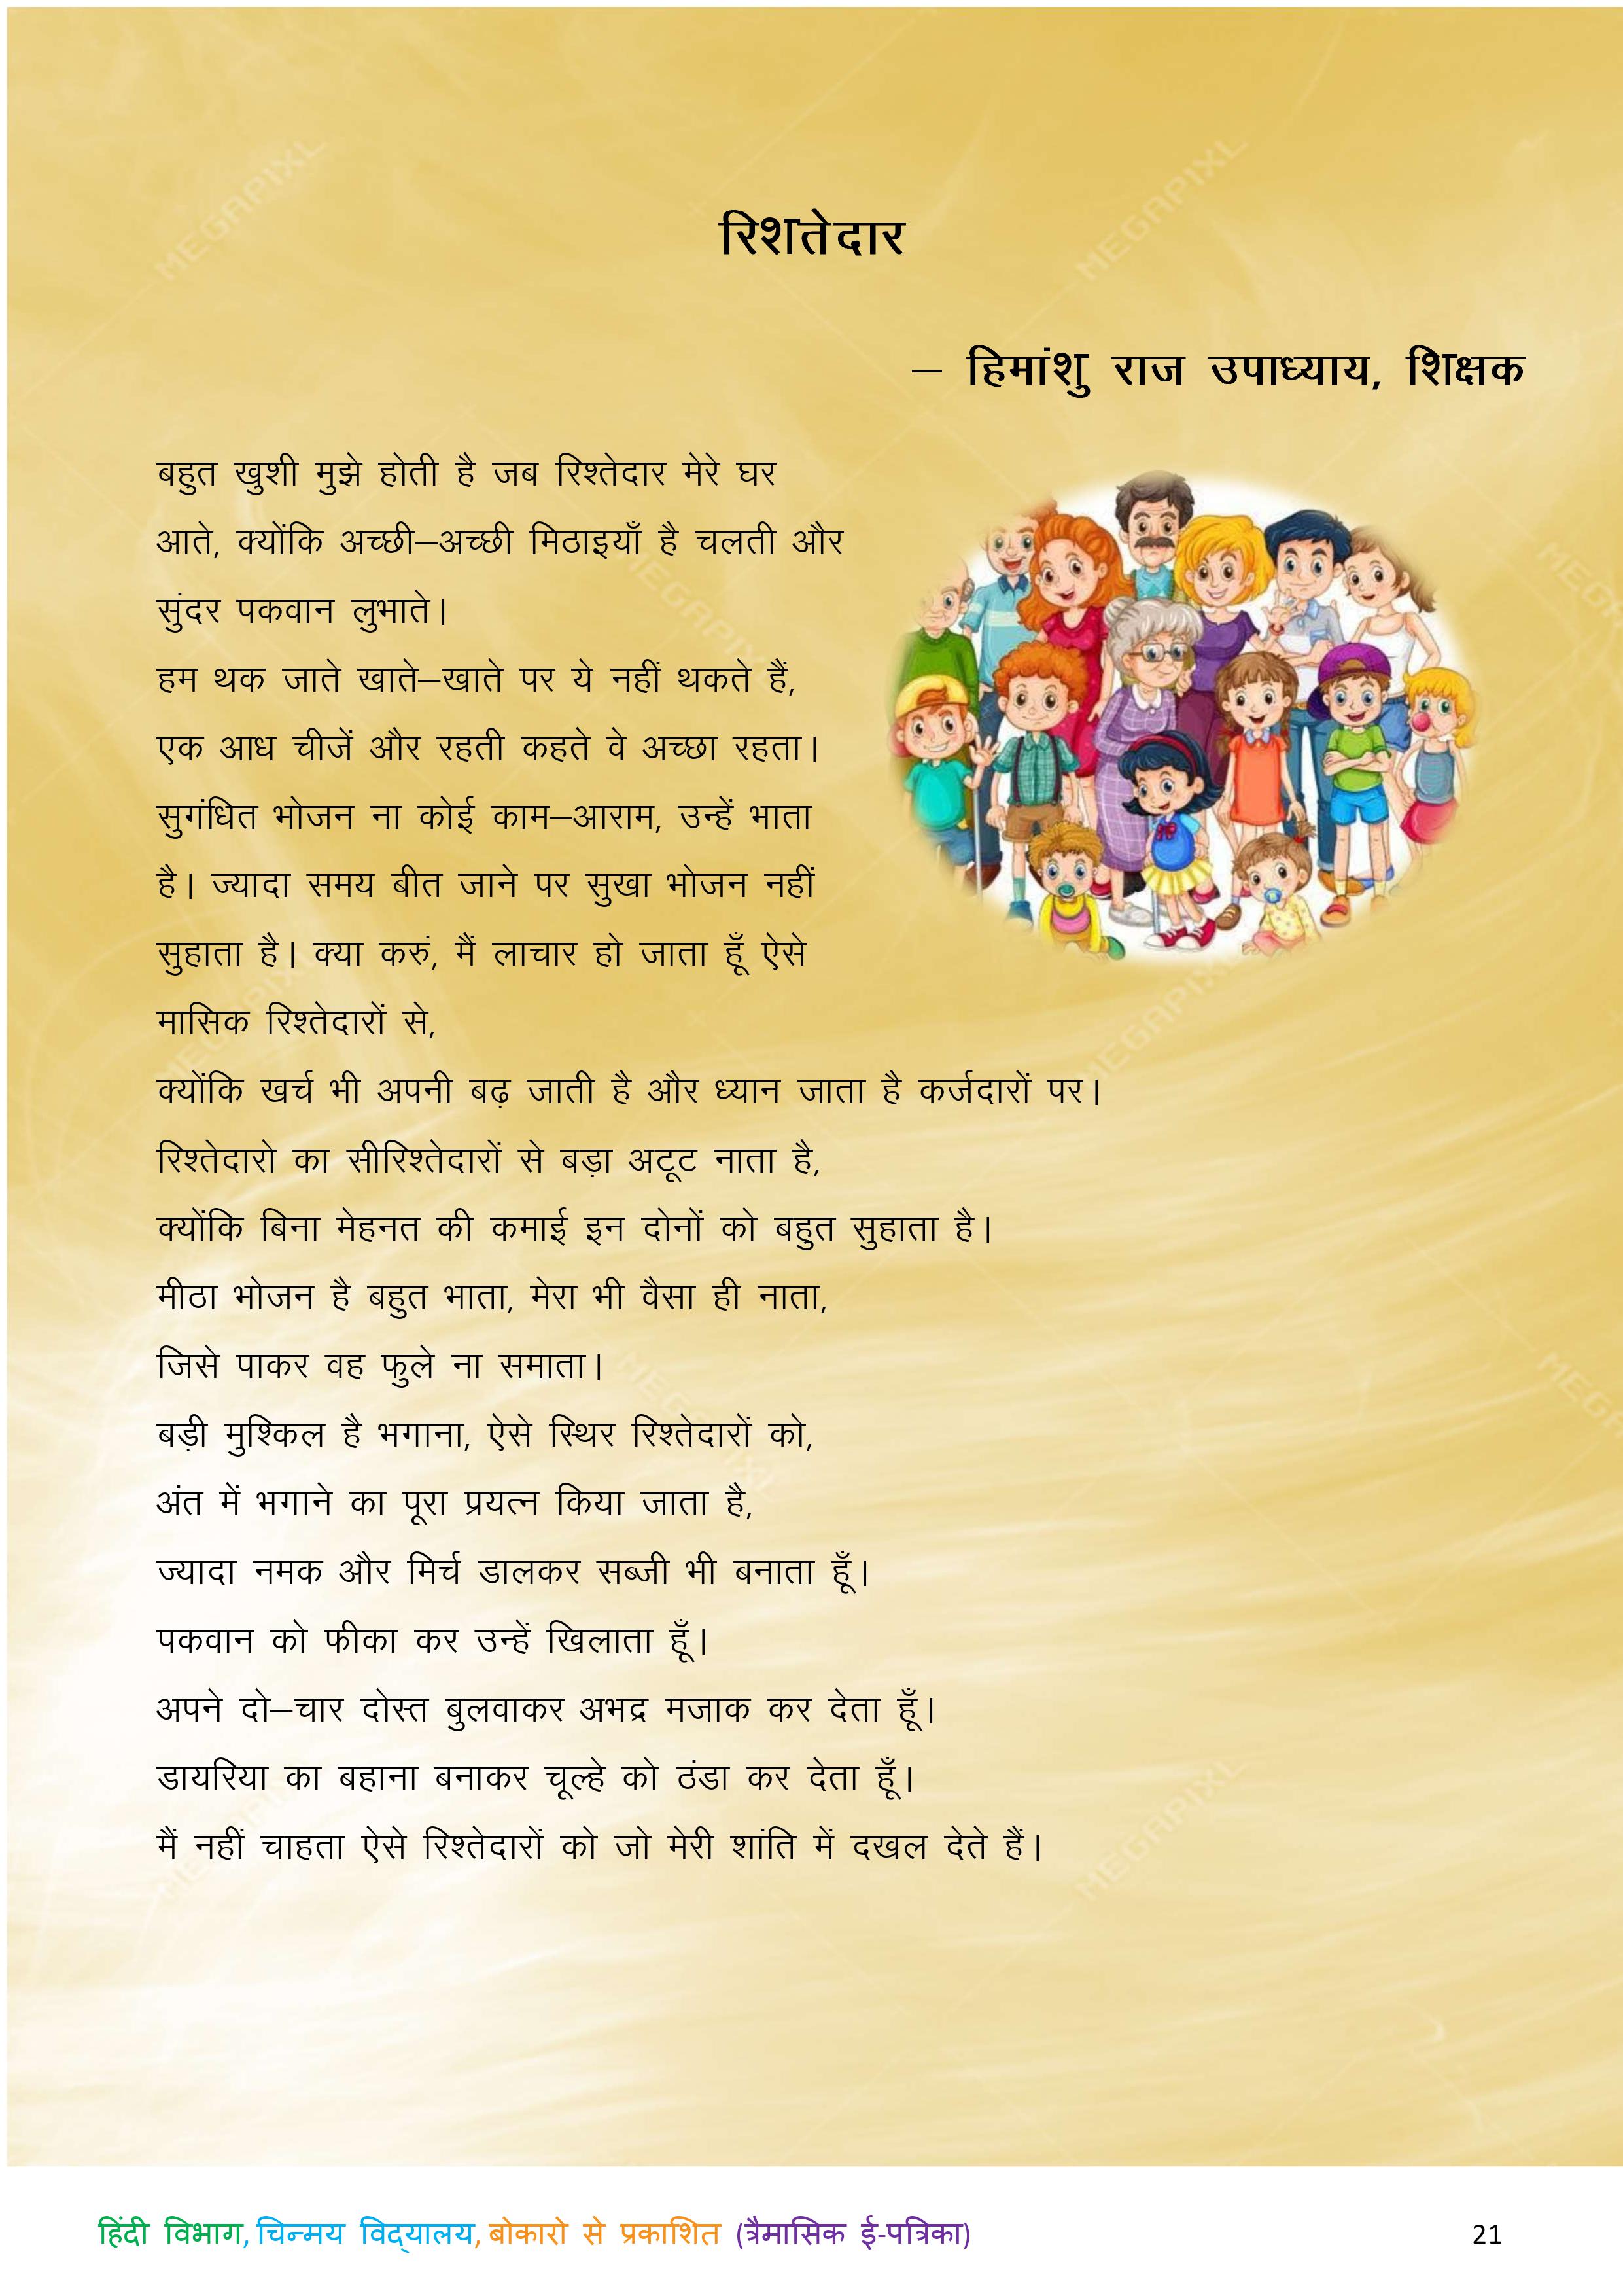 रिशतेदार
– हिमांशु राज उपाध्याय, शिक्षक
बहुत खुशी मुझे होती है जब रिश्तेदार मेरे घर
आते, क्योंकि अच्छी–अच्छी मिठाइयाँ है चलती और
सुंदर पकवान लुभाते।
हम थक जाते खाते–खाते पर ये नहीं थकते हैं,
एक आध चीजें और रहती कहते वे अच्छा रहता।
सुगंधित भोजन ना कोई काम–आराम, उन्हें भाता
है। ज्यादा समय बीत जाने पर सुखा भोजन नहीं
सुहाता है। क्या करुं, मैं लाचार हो जाता हूँ ऐसे
मासिक रिश्तेदारों से,
क्योंकि खर्च भी अपनी बढ़ जाती है और ध्यान जाता है कर्जदारों पर।
रिश्तेदारो का सीरिश्तेदारों से बड़ा अटूट नाता है,
क्योंकि बिना मेहनत की कमाई इन दोनों को बहुत सुहाता है।
मीठा भोजन है बहुत भाता, मेरा भी वैसा ही नाता,
जिसे पाकर वह फुले ना समाता।
बड़ी मुश्किल है भगाना, ऐसे स्थिर रिश्तेदारों को,
अंत में भगाने का पूरा प्रयत्न किया जाता है,
ज्यादा नमक और मिर्च डालकर सब्जी भी बनाता हूँ।
पकवान को फीका कर उन्हें खिलाता हूँ।
अपने दो–चार दोस्त बुलवाकर अभद्र मजाक कर देता हूँ।
डायरिया का बहाना बनाकर चूल्हे को ठंडा कर देता हूँ।
मैं नहीं चाहता ऐसे रिश्तेदारों को जो मेरी शांति में दखल देते हैं।
हिंदी विभाग, चिन्मय विद्यालय, बोकारो से प्रकाशित (त्रैमासिक ई-पत्रिका) 21
MEGAPIXL